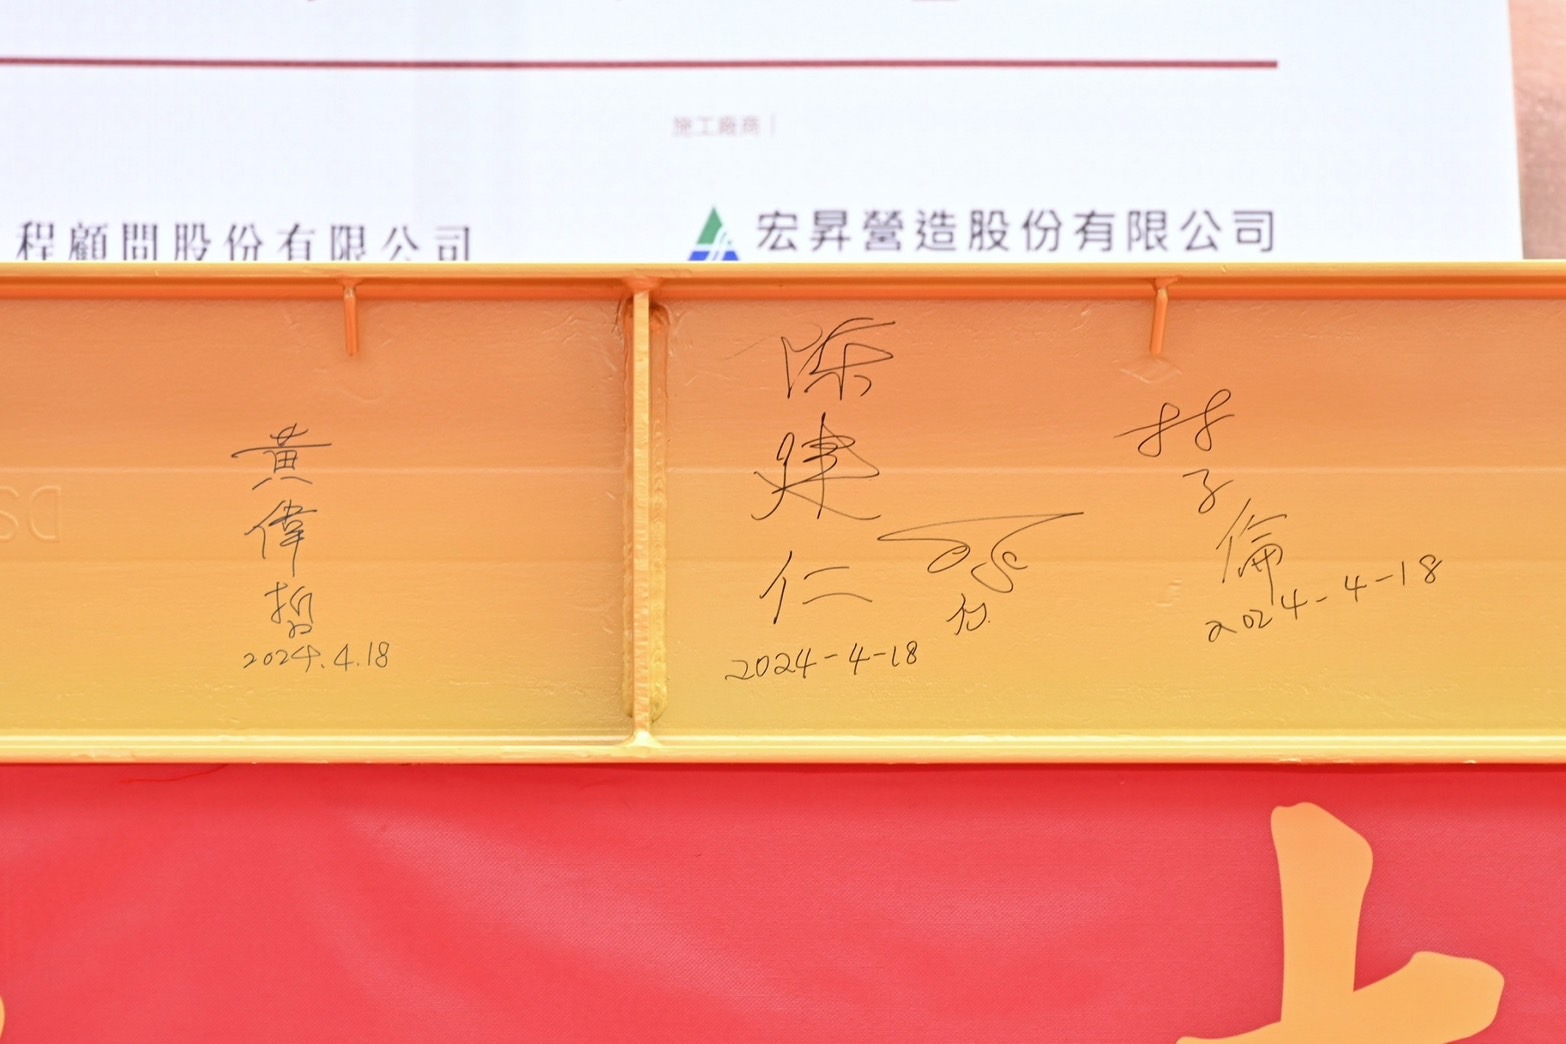 施工廠商|
程顧問股份有限公司
宏昇營造股份有限公司
黃偉哲
2024.4.18
陳建仁
2024-4-18
林子倫
2024-4-18
上